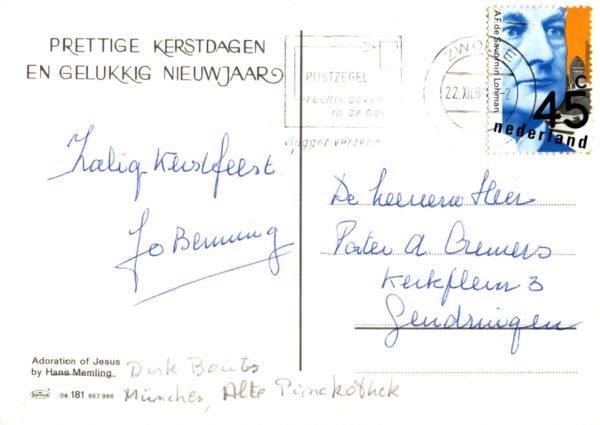 PRETTIGE KERSTDAGEN
EN GELUKKIG NIEUWJAAR
Zalig Kerstfeest
Jo Benning
Adoration of Jesus
by Hans Memling
Dirk Bouts
München, Alte Pinakothek
04 181 867 986
POSTZEGEL
rechts boven
in de hoek
vlugger verzend
ZWOLLE
22.XII.8
A.F. de Savornin Lohman
45 c
nederland
De heer
Pater A. Cremers
Kerkplein 3
Gendringen